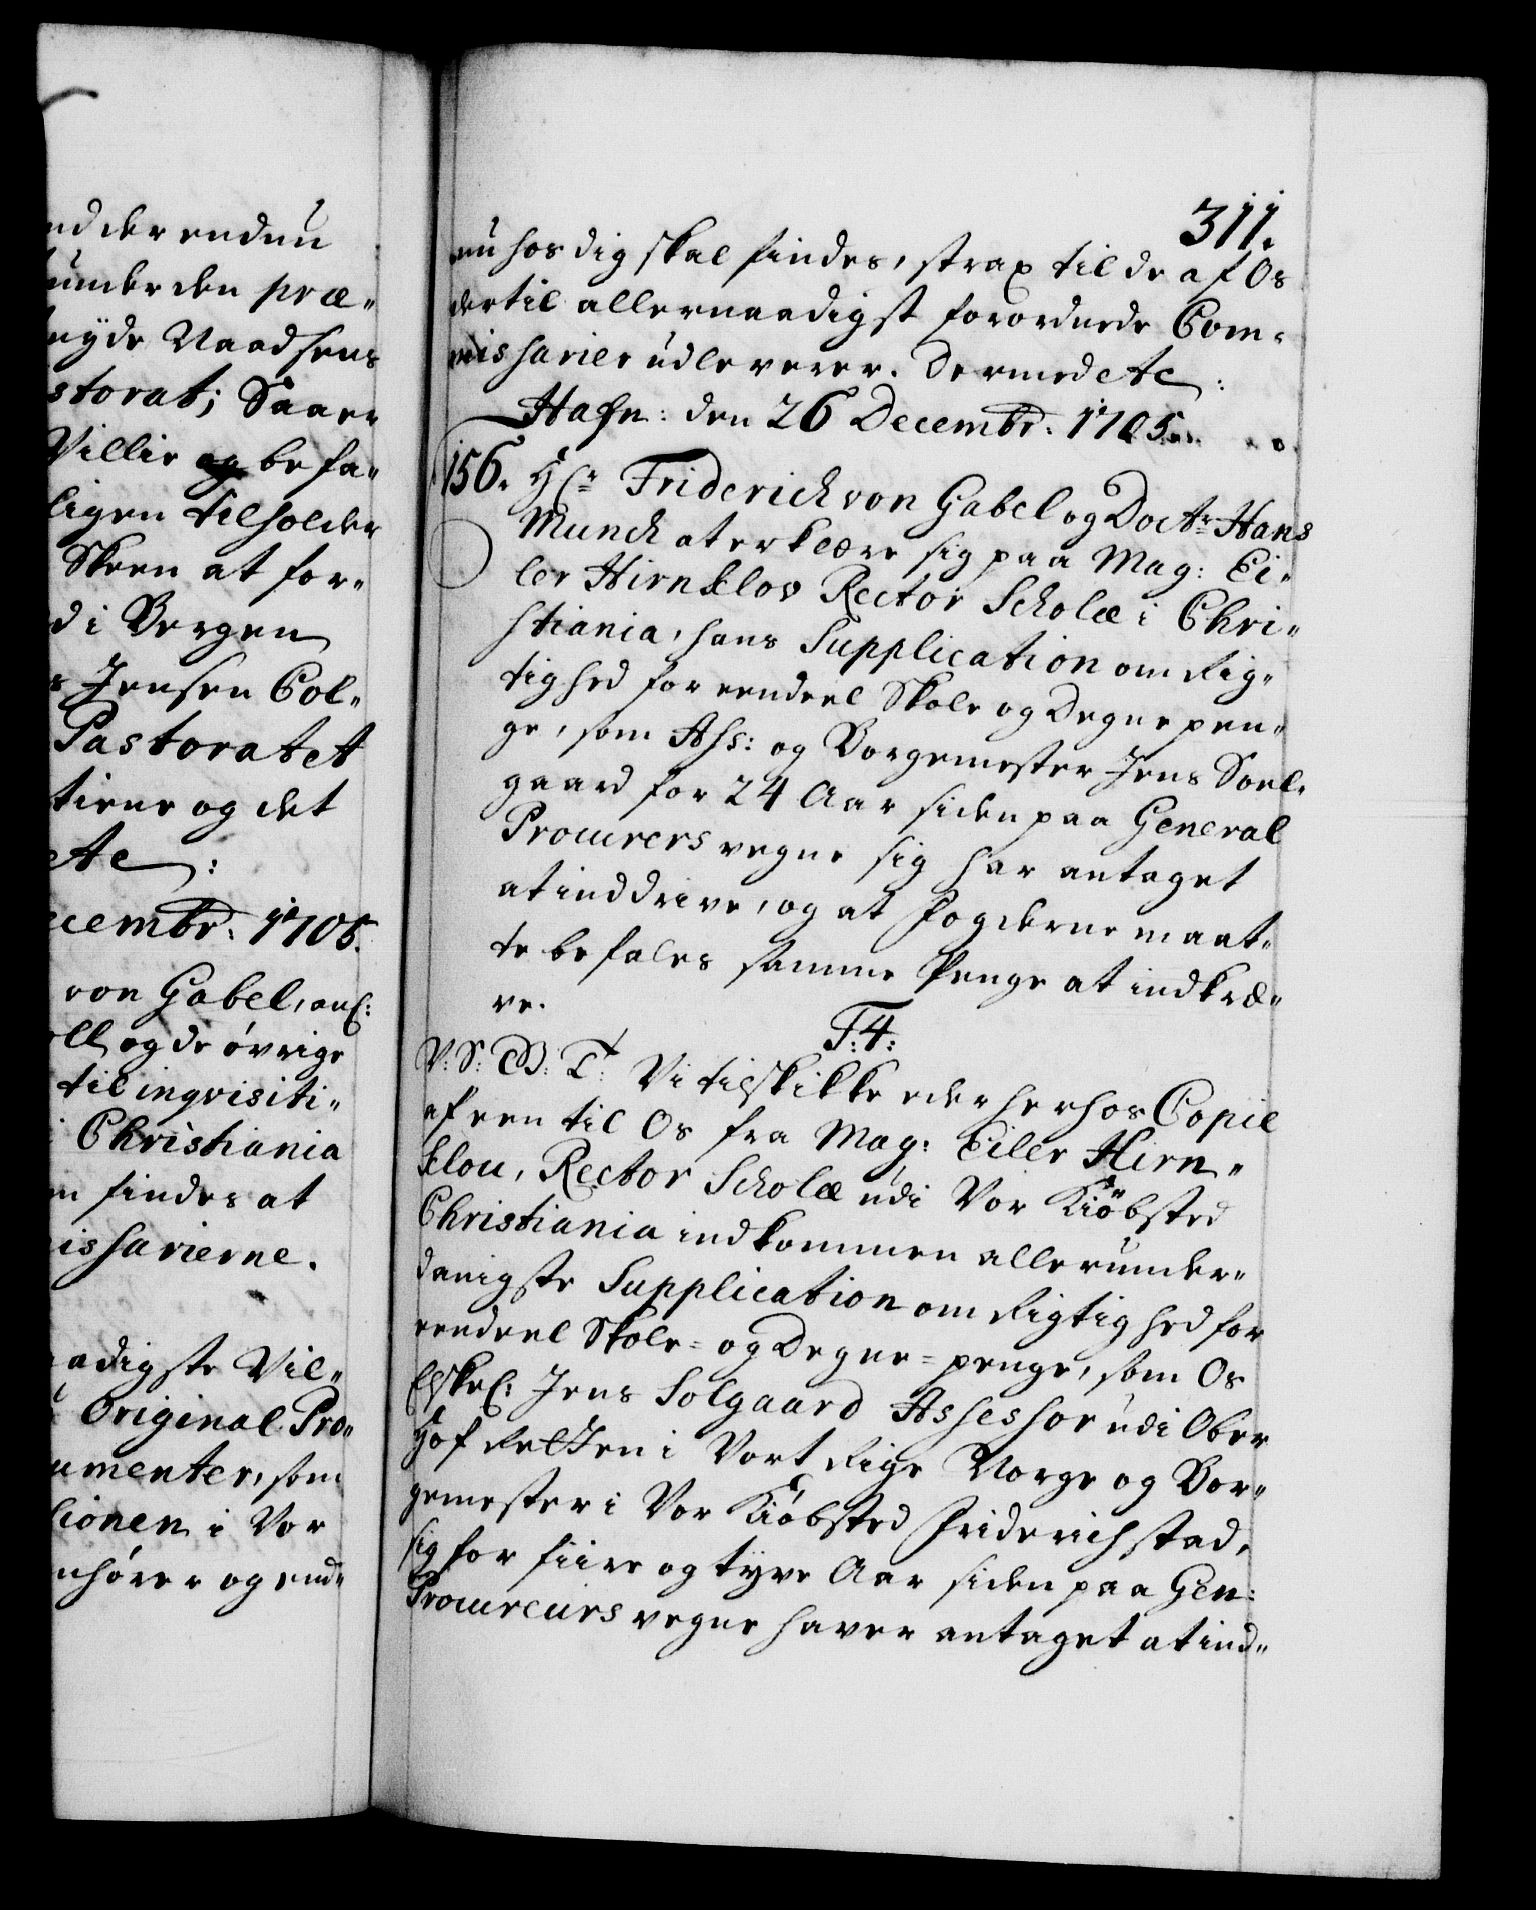 nd der endnu
under den præ„
nyde Naadsens
storat; Saa er
Villie og befa„
ligen tilholder
Skeen at for„
d i Bergen
s Jensen Col„
Pastoratet
tiene og det
etc:
ecembr: 1705.
von Gabel, anl:
oll og de øvrige
til inqvisiti„
i Christiania
m findes at
issarierne.
aadigste Vil„
Original Pro„
umenter, som
tionen i Vor
nhører og end„
311.
nu hos dig skal findes, strax til de af Os
dertil allernaadigst forordnede Com„
missarier udleverer. Dermed etc:
Hafn: den 26 Decembr: 1705.
156. Hr Friderich von Gabel og Doctr Hans
Munch at erklære sig paa Mag: Ei„
ler Hirnklov Rector Scholæ i Chri„
stiania, hans Supplication om Rig„
tighed for eendeel Skole og Degne pen„
ge, som Ass: og Borgemester Jens Soel„
gaard for 24 Aar siden paa General
Procurers vegne sig har antaget
at inddrive, og at Fogderne maat„
te befales samme Penge at indkræ„
ve.
T:4:
V: S: G: T: Vi tilskikke eder herhos Copie
af een til Os fra Mag: Eiler Hirn„
klou, Rector Scholæ udi Vor Kiøbsted
Christiania indkommen allerunder„
danigste Supplication om Rigtighed for
eendeel Skole= og Degne=penge, som Os
Elskel: Jens Solgaard Assessor udi Ober
Hof Retten i Vort Rige Norge og Bor„
gemester i Vor Kiøbsted Friderichstad,
sig for fiire og tyve Aar siden paa Gen:
Procureurs vegne haver antaget at ind„